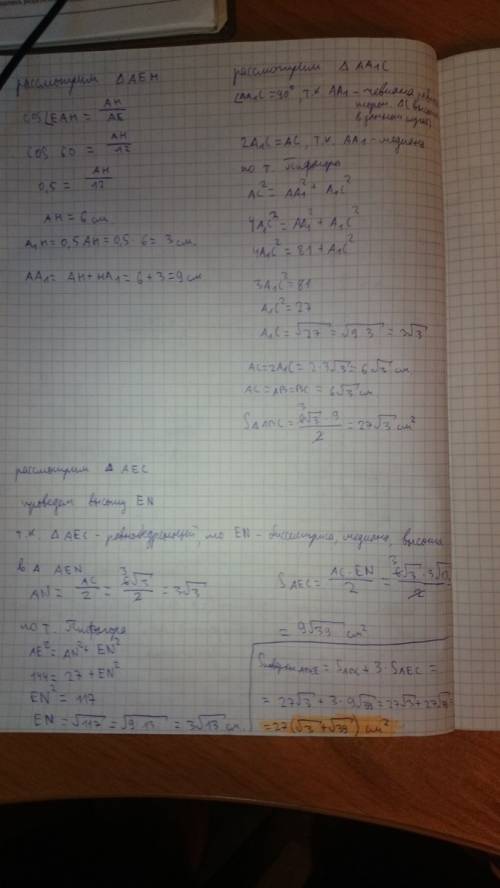 рассмотрим Δ AEH
cos∠EAH = AH/AE
cos 60 = AH/12
0,5 = AH/12
AH = 6 см
A₁H = 0,5 AH = 0,5 · 6 = 3 см.
AA₁ = AH + HA₁ = 6 + 3 = 9 см
рассмотрим Δ AA₁C
∠AA₁C = 90°, т.к. AA₁ -
2A₁C = AC, т.к. AA₁ - медиана
по т. Пифагора
AC² = AA₁² + A₁C²
4A₁C² = AA₁² + A₁C²
4A₁C² = 81 + A₁C²
3A₁C² = 81
A₁C² = 27
A₁C = √27 = √9·3 = 3√3
AC = 2A₁C = 2·3√3 = 6√3 см
AC = AB = BC = 6√3 см
S ΔABC = 6√3 · 9 / 2 = 27√3 см²
рассмотрим Δ AEC
проведем высоту EN
т.к. Δ AEC - равнобедренный, то EN - биссектриса, медиана, высота
в Δ AEN
AN = AC/2 = 6√3/2 = 3√3
по т. Пифагора
AE² = AN² + EN²
144 = 27 + EN²
EN² = 117
EN = √117 = √9·13 = 3√13 см
S AEC = AC · EN / 2 = 6√3 · 3√13 / 2
= 9√39 см²
= S + 3 · S AEC =
= 27√3 + 3 · 9√39 = 27√3 + 27√39 =
= 27(√3 + √39) см²